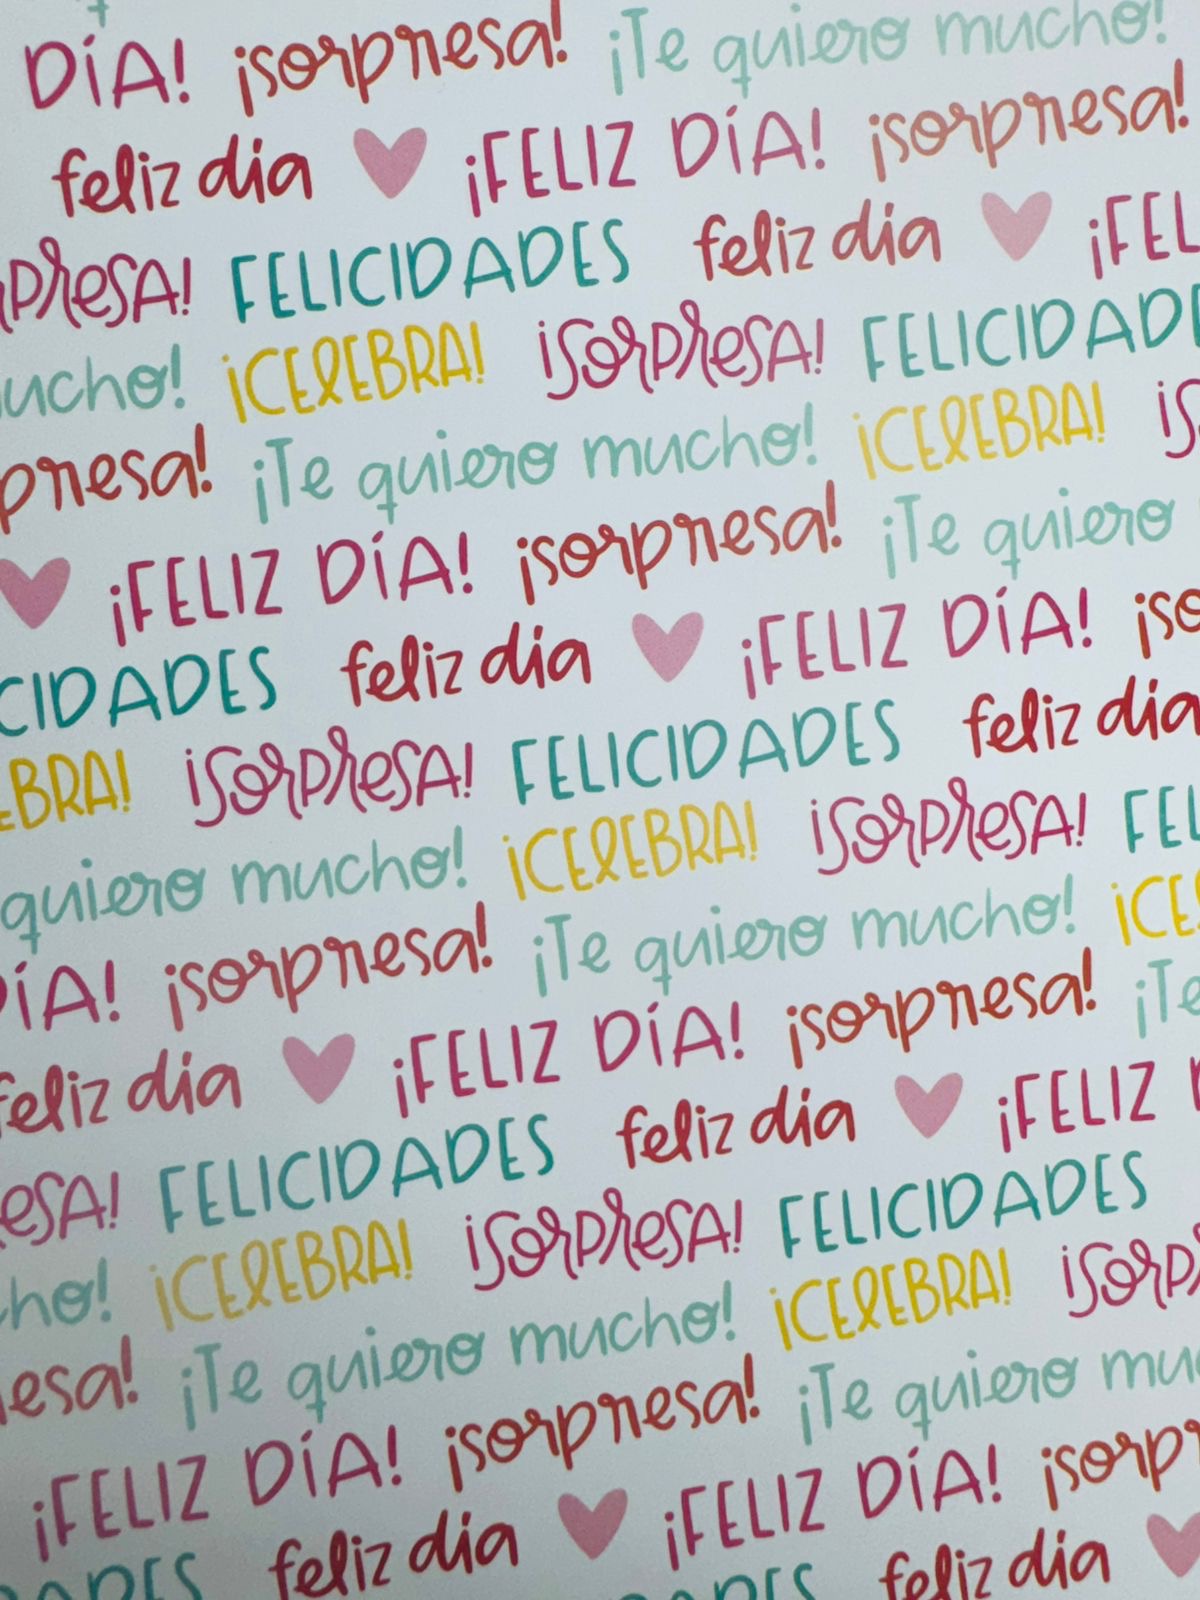 DÍA! ¡sorpresa! ¡Te quiero mucho!
feliz día ¡FELIZ DÍA! ¡sorpresa!
FELICIDADES feliz día ¡FEL
mucho! ¡CELEBRA! ¡SORPRESA! FELICIDADE
presa! ¡Te quiero mucho! ¡CELEBRA! ¡S
¡FELIZ DÍA! ¡sorpresa! ¡Te quiero
CIDADES feliz día ¡FELIZ DÍA! ¡so
EBRA! ¡SORPRESA! FELICIDADES feliz día
quiero mucho! ¡CELEBRA! ¡SORPRESA! FEL
DÍA! ¡sorpresa! ¡Te quiero mucho! ¡CE
feliz día ¡FELIZ DÍA! ¡sorpresa! ¡Te
ESA! FELICIDADES feliz día ¡FELIZ
cho! ¡CELEBRA! ¡SORPRESA! FELICIDADES
esa! ¡Te quiero mucho! ¡CELEBRA! ¡SORP
¡FELIZ DÍA! ¡sorpresa! ¡Te quiero mu
DADES feliz día ¡FELIZ DÍA! ¡sorp
feliz día